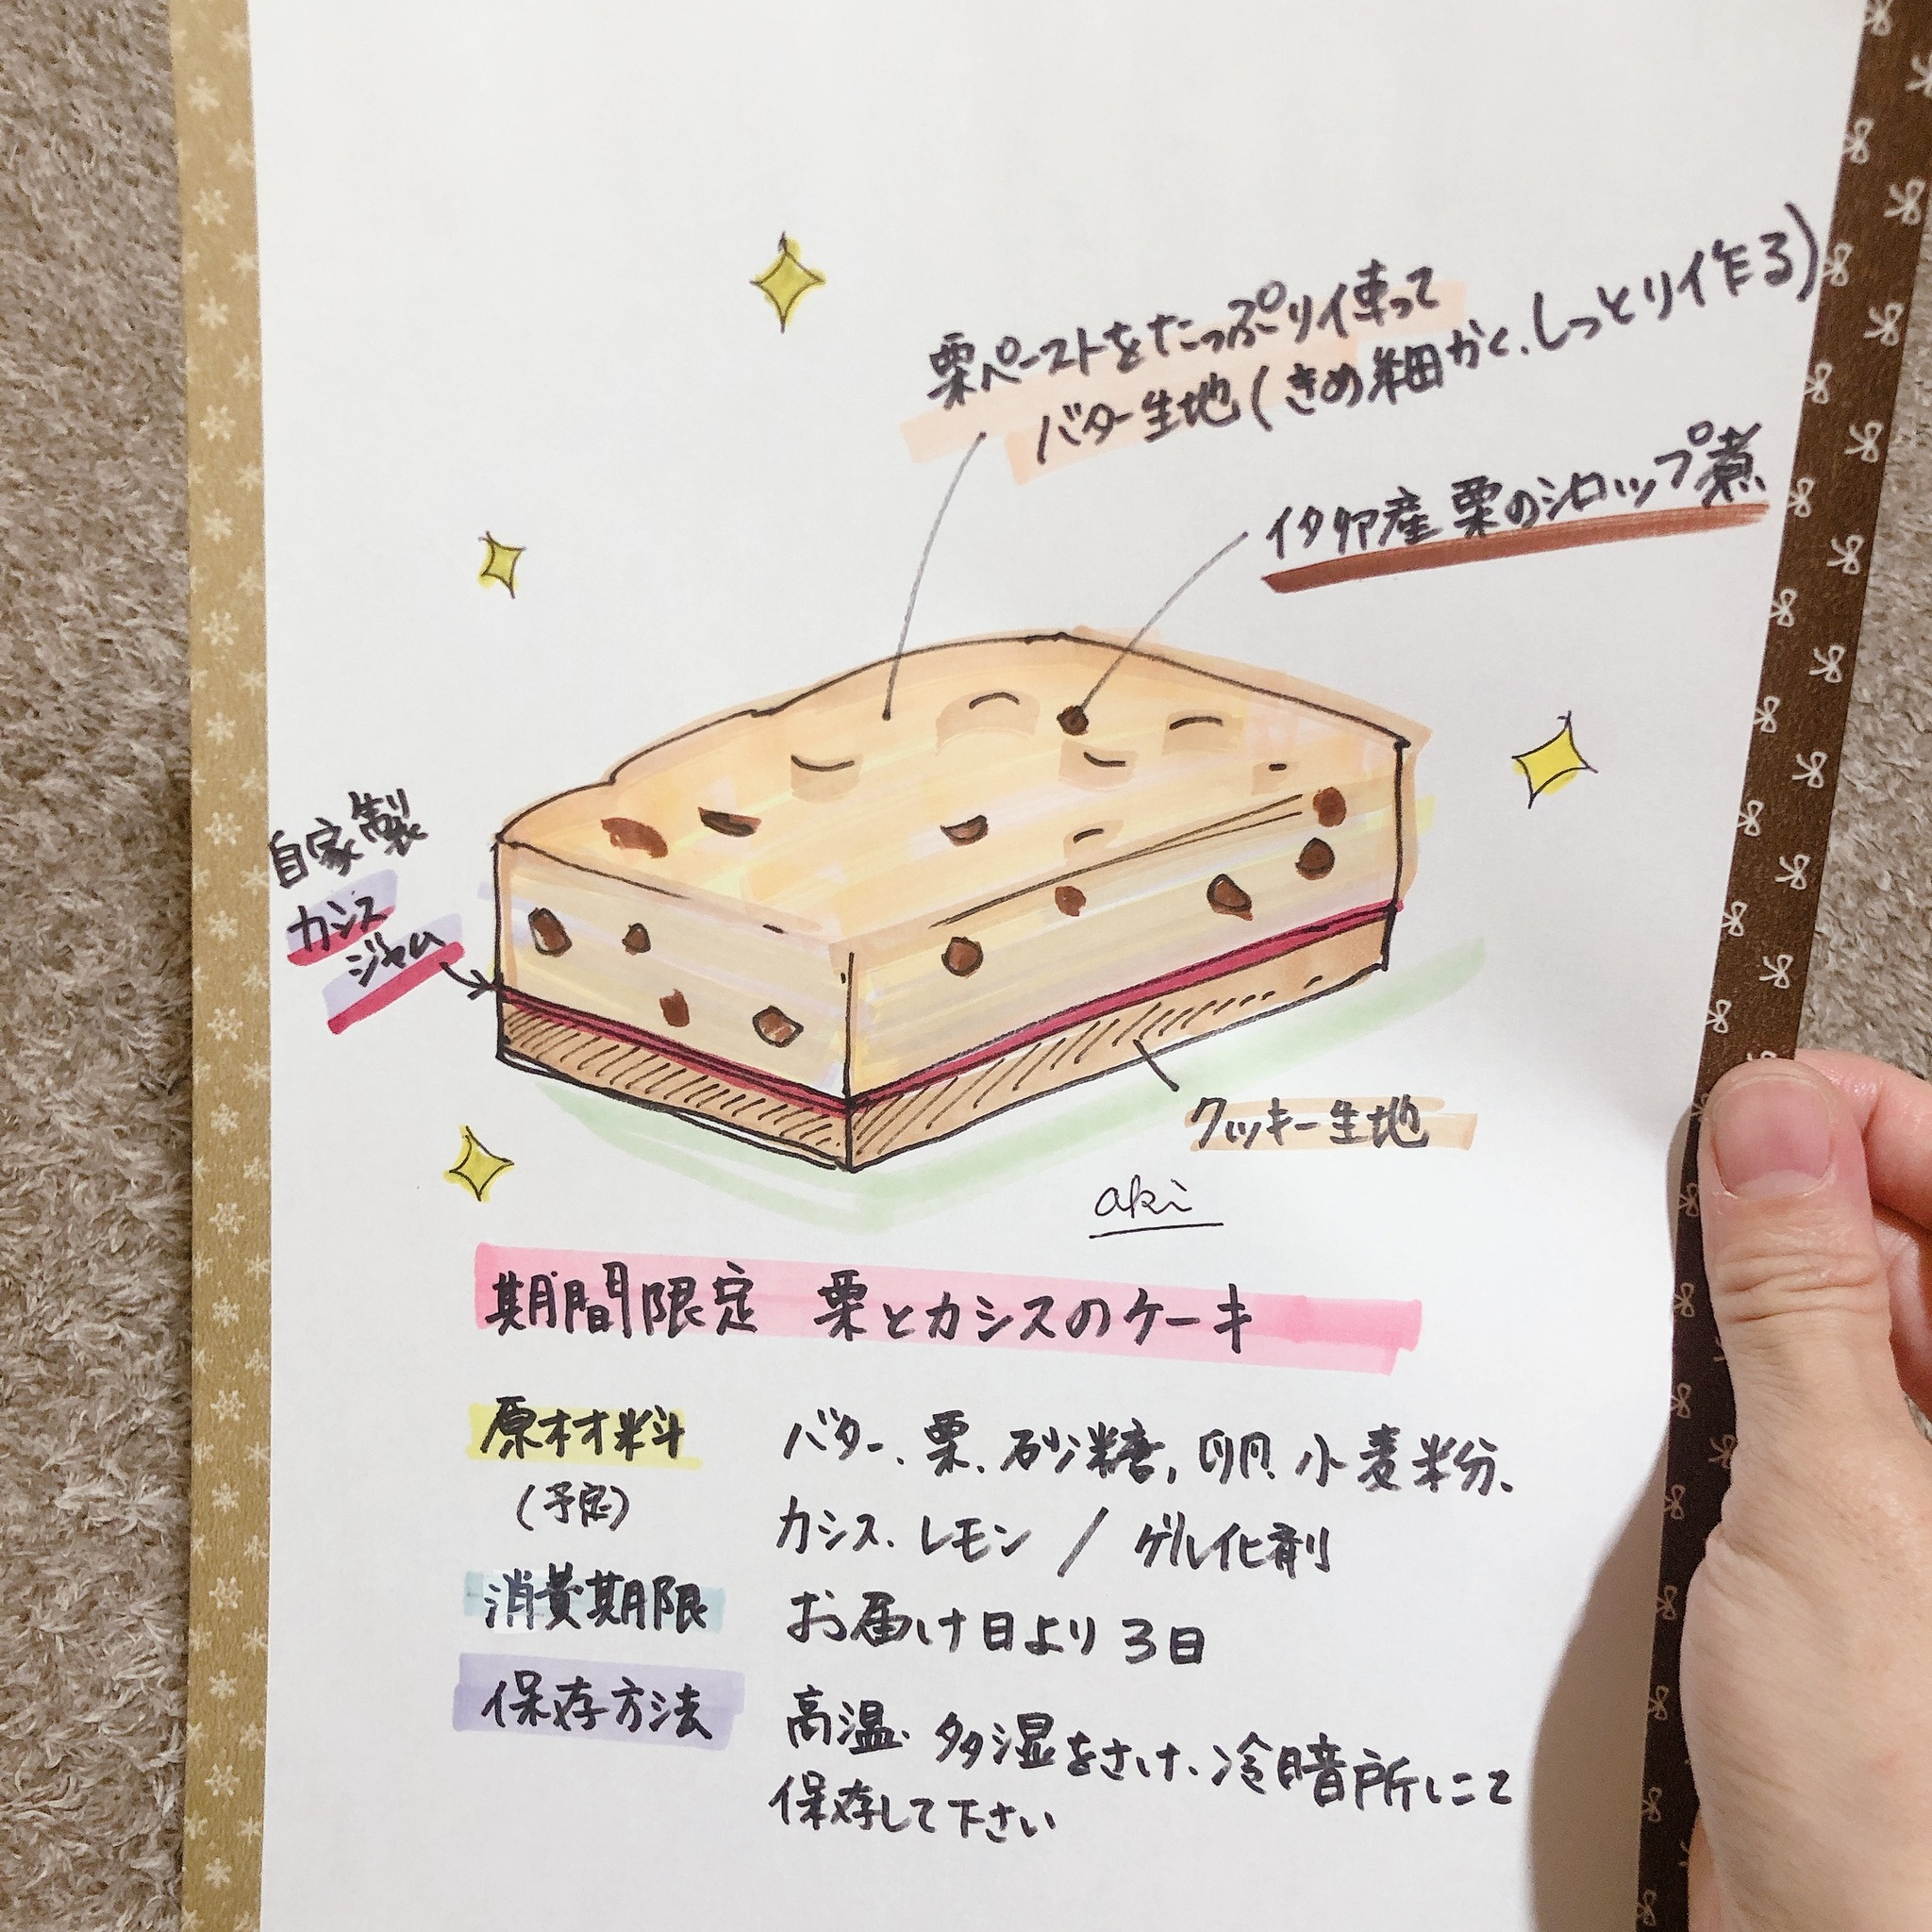 栗ペーストをたっぷり使って
バター生地(きめ細かく、しっとり作る)
イタリア産 栗のシロップ煮
自家製
カシス
ジャム
クッキー生地
aki
期間限定 栗とカシスのケーキ
原材料 バター、栗、砂糖、卵、小麦粉、
(予定) カシス、レモン / ゲル化剤
消費期限 お届け日より3日
保存方法 高温、多湿をさけ、冷暗所にて
保存して下さい